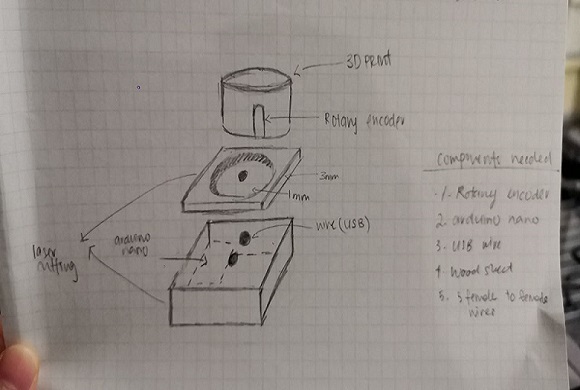 3D PRINT
Rotary encoder
3mm
1mm
wire (USB)
arduino
nano
laser
cutting
components needed
1. Rotary encoder
2. arduino nano
3. USB wire
4. wood sheet
5. 5 female to female
wires